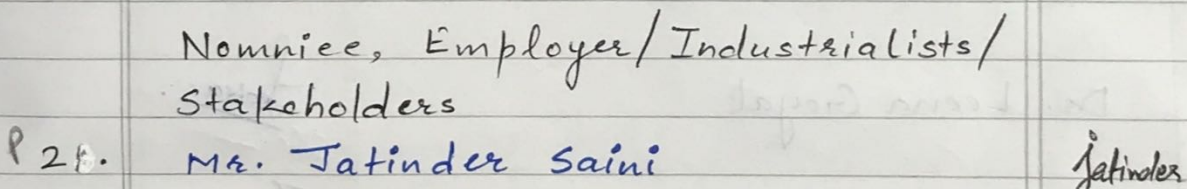 Nomniee, Employer/Industrialists/
Stakeholders
Mr. Jatinder Saini Jatinder